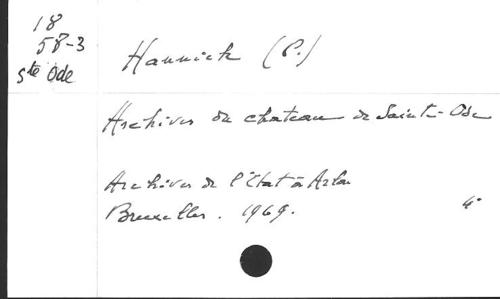 18
58-3
Ste Ode
Hannick (P.)
Archives du chateau de Sainte-Ode
Archives de l'Etat à Arlon
Bruxelles. 1969.
4°